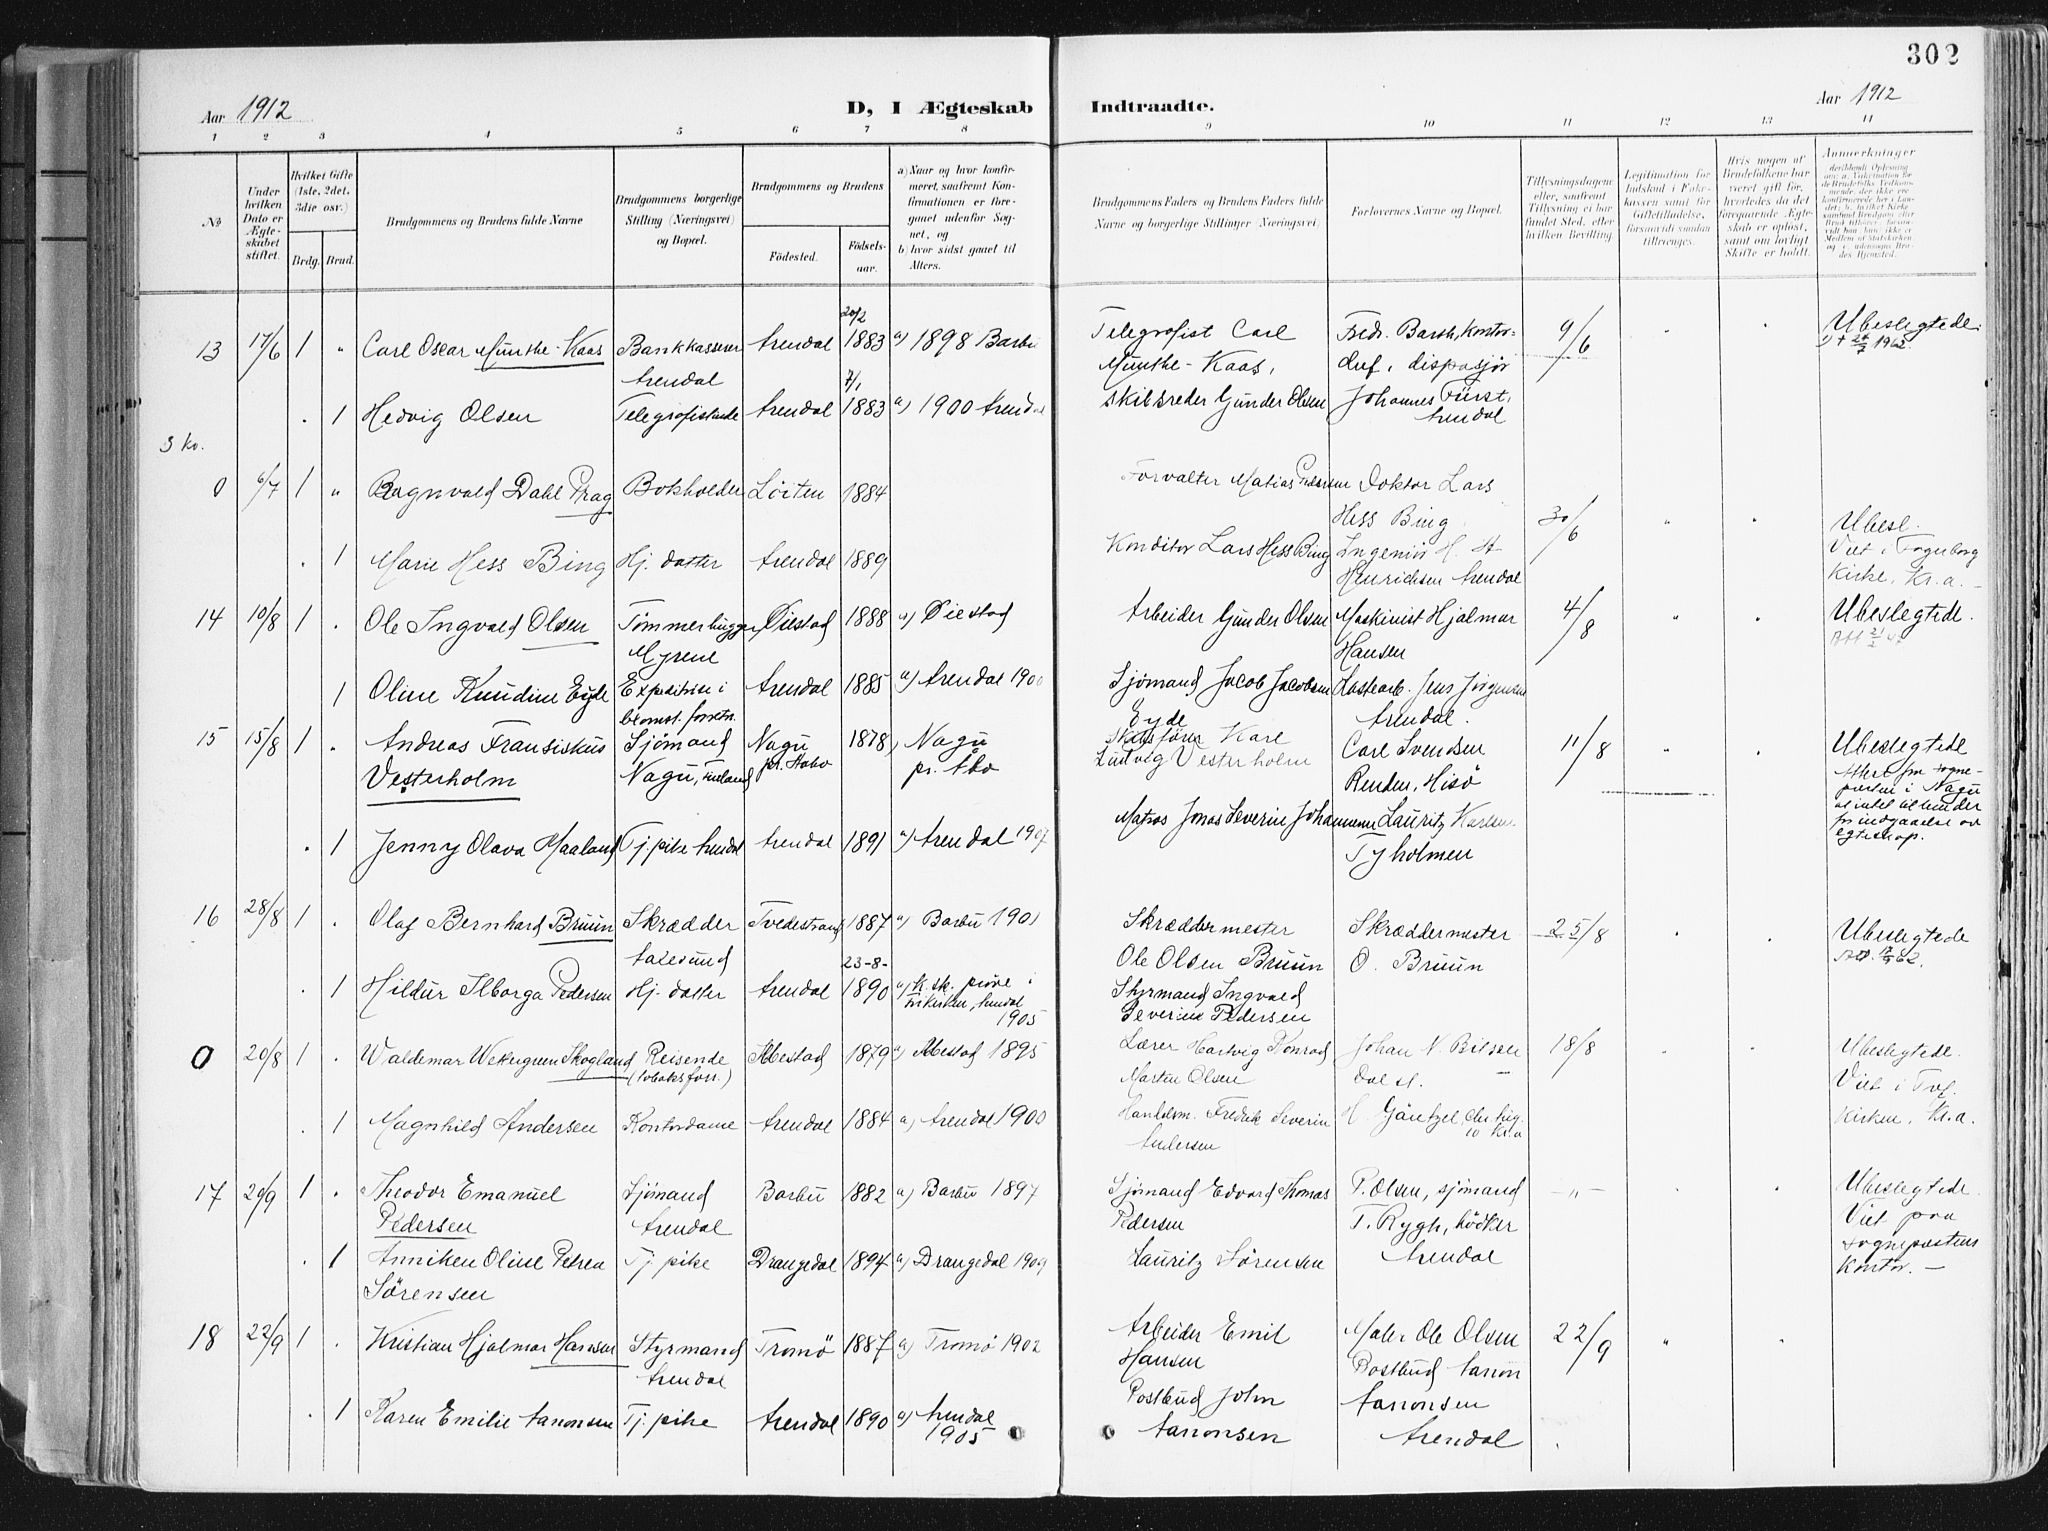 302
Aar 1912
D, I Ægteskab Indtraadte.
Aar 1912
1 2 3 4 5 6 7 8 9 10 11 12 13 14
No.
Under hvilken Dato er Ægteskabet stiftet.
Hvilket Gifte (1ste, 2det, 3die osv.)
Brdg. Brud.
Brudgommens og Brudens fulde Navne
Brudgommens borgerlige Stilling (Næringsvei) og Bopæl.
Brudgommens og Brudens
Fødested. Fødselsaar.
a) Naar og hvor konfirmeret, saafremt Konfirmationen er foregaaet udenfor Sognet, og
b) hvor sidst gaaet til Alters.
Brudgommens Faders og Brudens Faders fulde Navne og borgerlige Stillinger (Næringsvei)
Forlovernes Navne og Bopæl.
Tillysningsdagene eller, saafremt Tillysning ei har fundet Sted, efter hvilken Bevilling.
Legitimation for Indskud i Enkekassen samt for Giftetilladelse, forsaavidt saadan tiltrænges.
Hvis nogen af Brudefolkene har været gift før, hvorledes da det foregaaende Ægteskab er opløst, samt om lovligt Skifte er holdt.
Anmærkninger
13 17/6 1 " Carl Oscar Munthe-Kaas Bankkasserer Arendal 20/2 1883 a) 1898 Barbu Telegrafist Carl Fredr. Barth, kontor- 9/6 " " Ubeslegtede.
Arendal 7/1 Munthe-Kaas, chef, dispasjör
. 1 Hedvig Olsen Telegrafistinde Arendal 1883 a) 1900 Arendal Skibsreder Gunder Olsen Johannes Fürst,
Arendal
3 kv.
0 6/7 1 " Ragnvald Dahl Prag Bokholder Löiten 1884 Forvalter Matias Pedersen Doktor Lars
Hess Bing 30/6 " " Ubesl.
. 1 Marie Hess Bing Hj. datter Arendal 1889 Konditor Lars Hess Bing Ingeniör H. A. Viet i Fagerborg
Henrichsen Arendal Kirke, Kr.a. —
14 10/8 1 . Ole Ingvald Olsen Tömmerhugger Öiestad 1888 a) Öiestad Arbeider Gunder Olsen Maskinist Hjalmar 4/8 " " Ubeslegtede.
Myrene Hansen
1 Oline Knudine Eyde Expeditrise i Arendal 1885 a) Arendal 1900 Sjömand Jacob Jacobsen Lastearb. Jens Jörgensen
blomst. forretn. Eyde Arendal.
15 15/8 1 " Andreas Fransiskus Sjömand Nagu 1878 Nagu Karl Carl Svendsen 11/8 " " Ubeslegtede
Vesterholm Nagu, Finland pr. Aabo pr. Åbo Ludvig Vesterholm Renden, Hisö Attest fra sogne-
presten i Nagu
at intet er til hinder
. 1 Jenny Olava Maaland Tj. pike Arendal Arendal 1891 a) Arendal 1907 Matros Jonas Severin Johannesen Lauritz Karlsen for indgaaelse av
Tyholmen egteskap.
16 28/8 1 . Olaf Bernhard Bruun Skrædder Tvedestrand 1887 a) Barbu 1901 Skræddermester Skræddermester 25/8 " " Ubeslegtede
Aalesund 23-8- Ole Olsen Bruun O. Bruun
. 1 Hildur Ilborga Pedersen Hj. datter Arendal 1890 a) k. sk. pröve i Styrmand Ingvald
frikirken, Arendal 1905 Severin Pedersen
0 20/8 1 . Waldemar Wettergreen Skogland Reisende Mestad 1879 a) Mestad 1895 Lærer Hartvig Konrad Johan N. 18/8 " " Ubeslegtede.
(tobaksforr.) Martin Olsen Viet i
. 1 Magnhild Andersen Kontordame Arendal 1884 a) Arendal 1900 Fredrik Severin H. Gäntzel Kirken, Kr.a.
Andersen
17 20/9 1 . Theodor Emanuel Sjömand Barbu 1882 a) Barbu 1897 Sjömand Edvard Thomas P. Olsen, sjömand — " — " " Ubeslegtede.
Pedersen Arendal Pedersen T. Rygh, höker Viet paa
. 1 Anniken Oline Petrea Tj. pike Drangedal 1894 a) Drangedal 1909 Lauritz Sörensen Arendal sognepresttens
Sörensen kontor. —
18 22/9 1 . Kristian Hjalmar Hansen Styrmand Tromö 1887 a) Tromö 1902 Arbeider Emil Maler Ole Olsen 22/9 " "
Arendal Hansen Postbud Aanon
. 1 Karen Emilie Aanonsen Tj. pike Arendal 1890 a) Arendal Postbud John Aanonsen
1905 Aanonsen Arendal